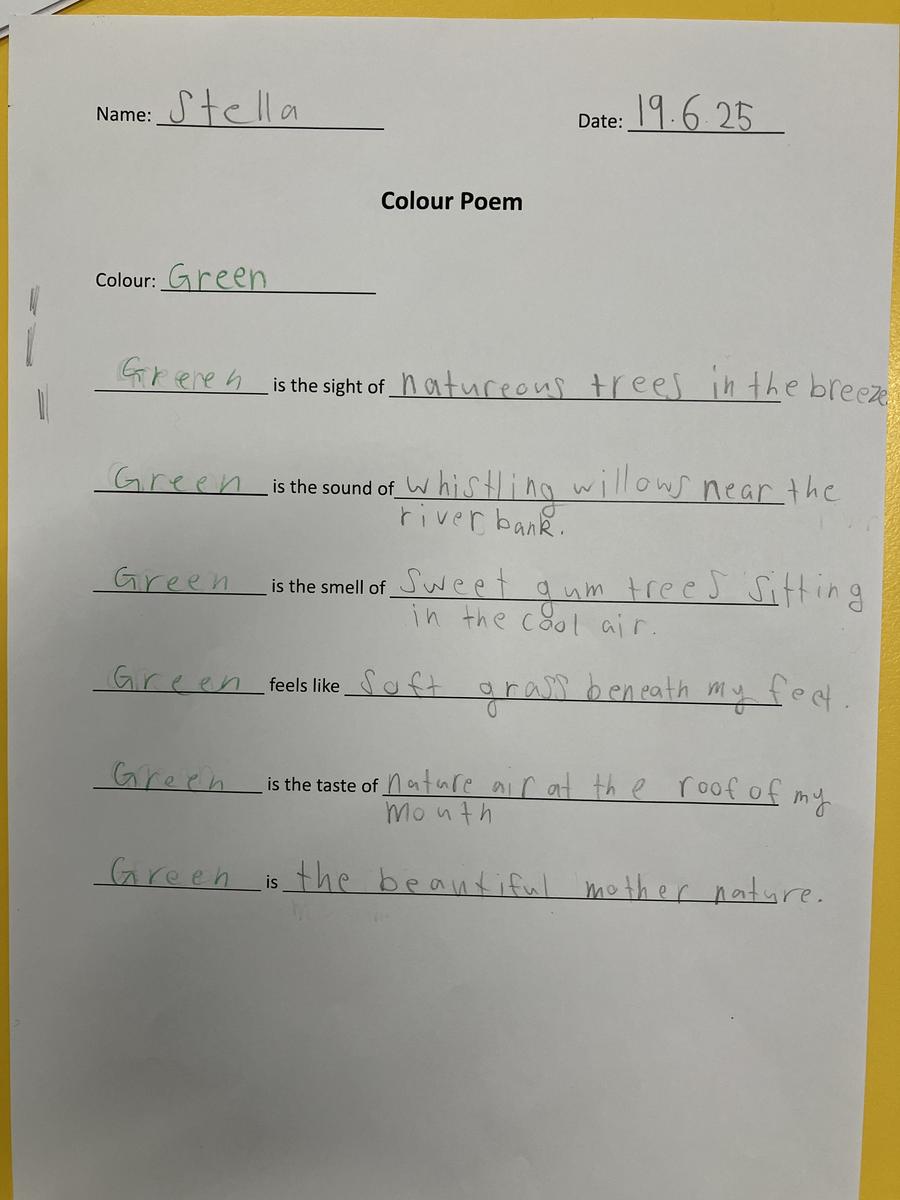 Name: Stella Date: 19.6.25
Colour Poem
Colour: Green
Greeen is the sight of natureous trees in the breeze
Green is the sound of whistling willows near the
river bank.
Green is the smell of Sweet gum trees sitting
in the cool air.
Green feels like Soft grass beneath my feet.
Green is the taste of nature air at the roof of my
mouth
Green is the beautiful mother nature.